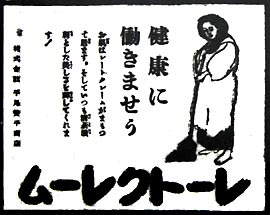 健康に
働きませう
お肌はレートクレームがまもつ
て居ます。そしていつも
とした美しさを してくれま
す!
株式會社 平尾賛平商店
レートクレーム